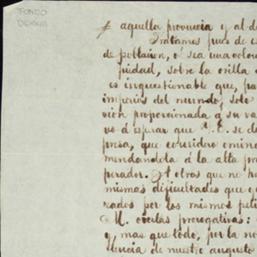 FONDO
aquella provincia y al de
Tratamos pues de e
de poblacion, ó sea una colon
piedad, sobre la orilla d
es incuestionable que, pa
imperios del mundo; solo
cion proporcionada á su va
vo á esperar que V. E. se d
presa, que considero emine
mendandola á la alta pro
perador. A otros que no h
mismas dificultades que e
por los mismos peli
M. prerrogativas:
y mas que todo, por la no
de nuestro augusto